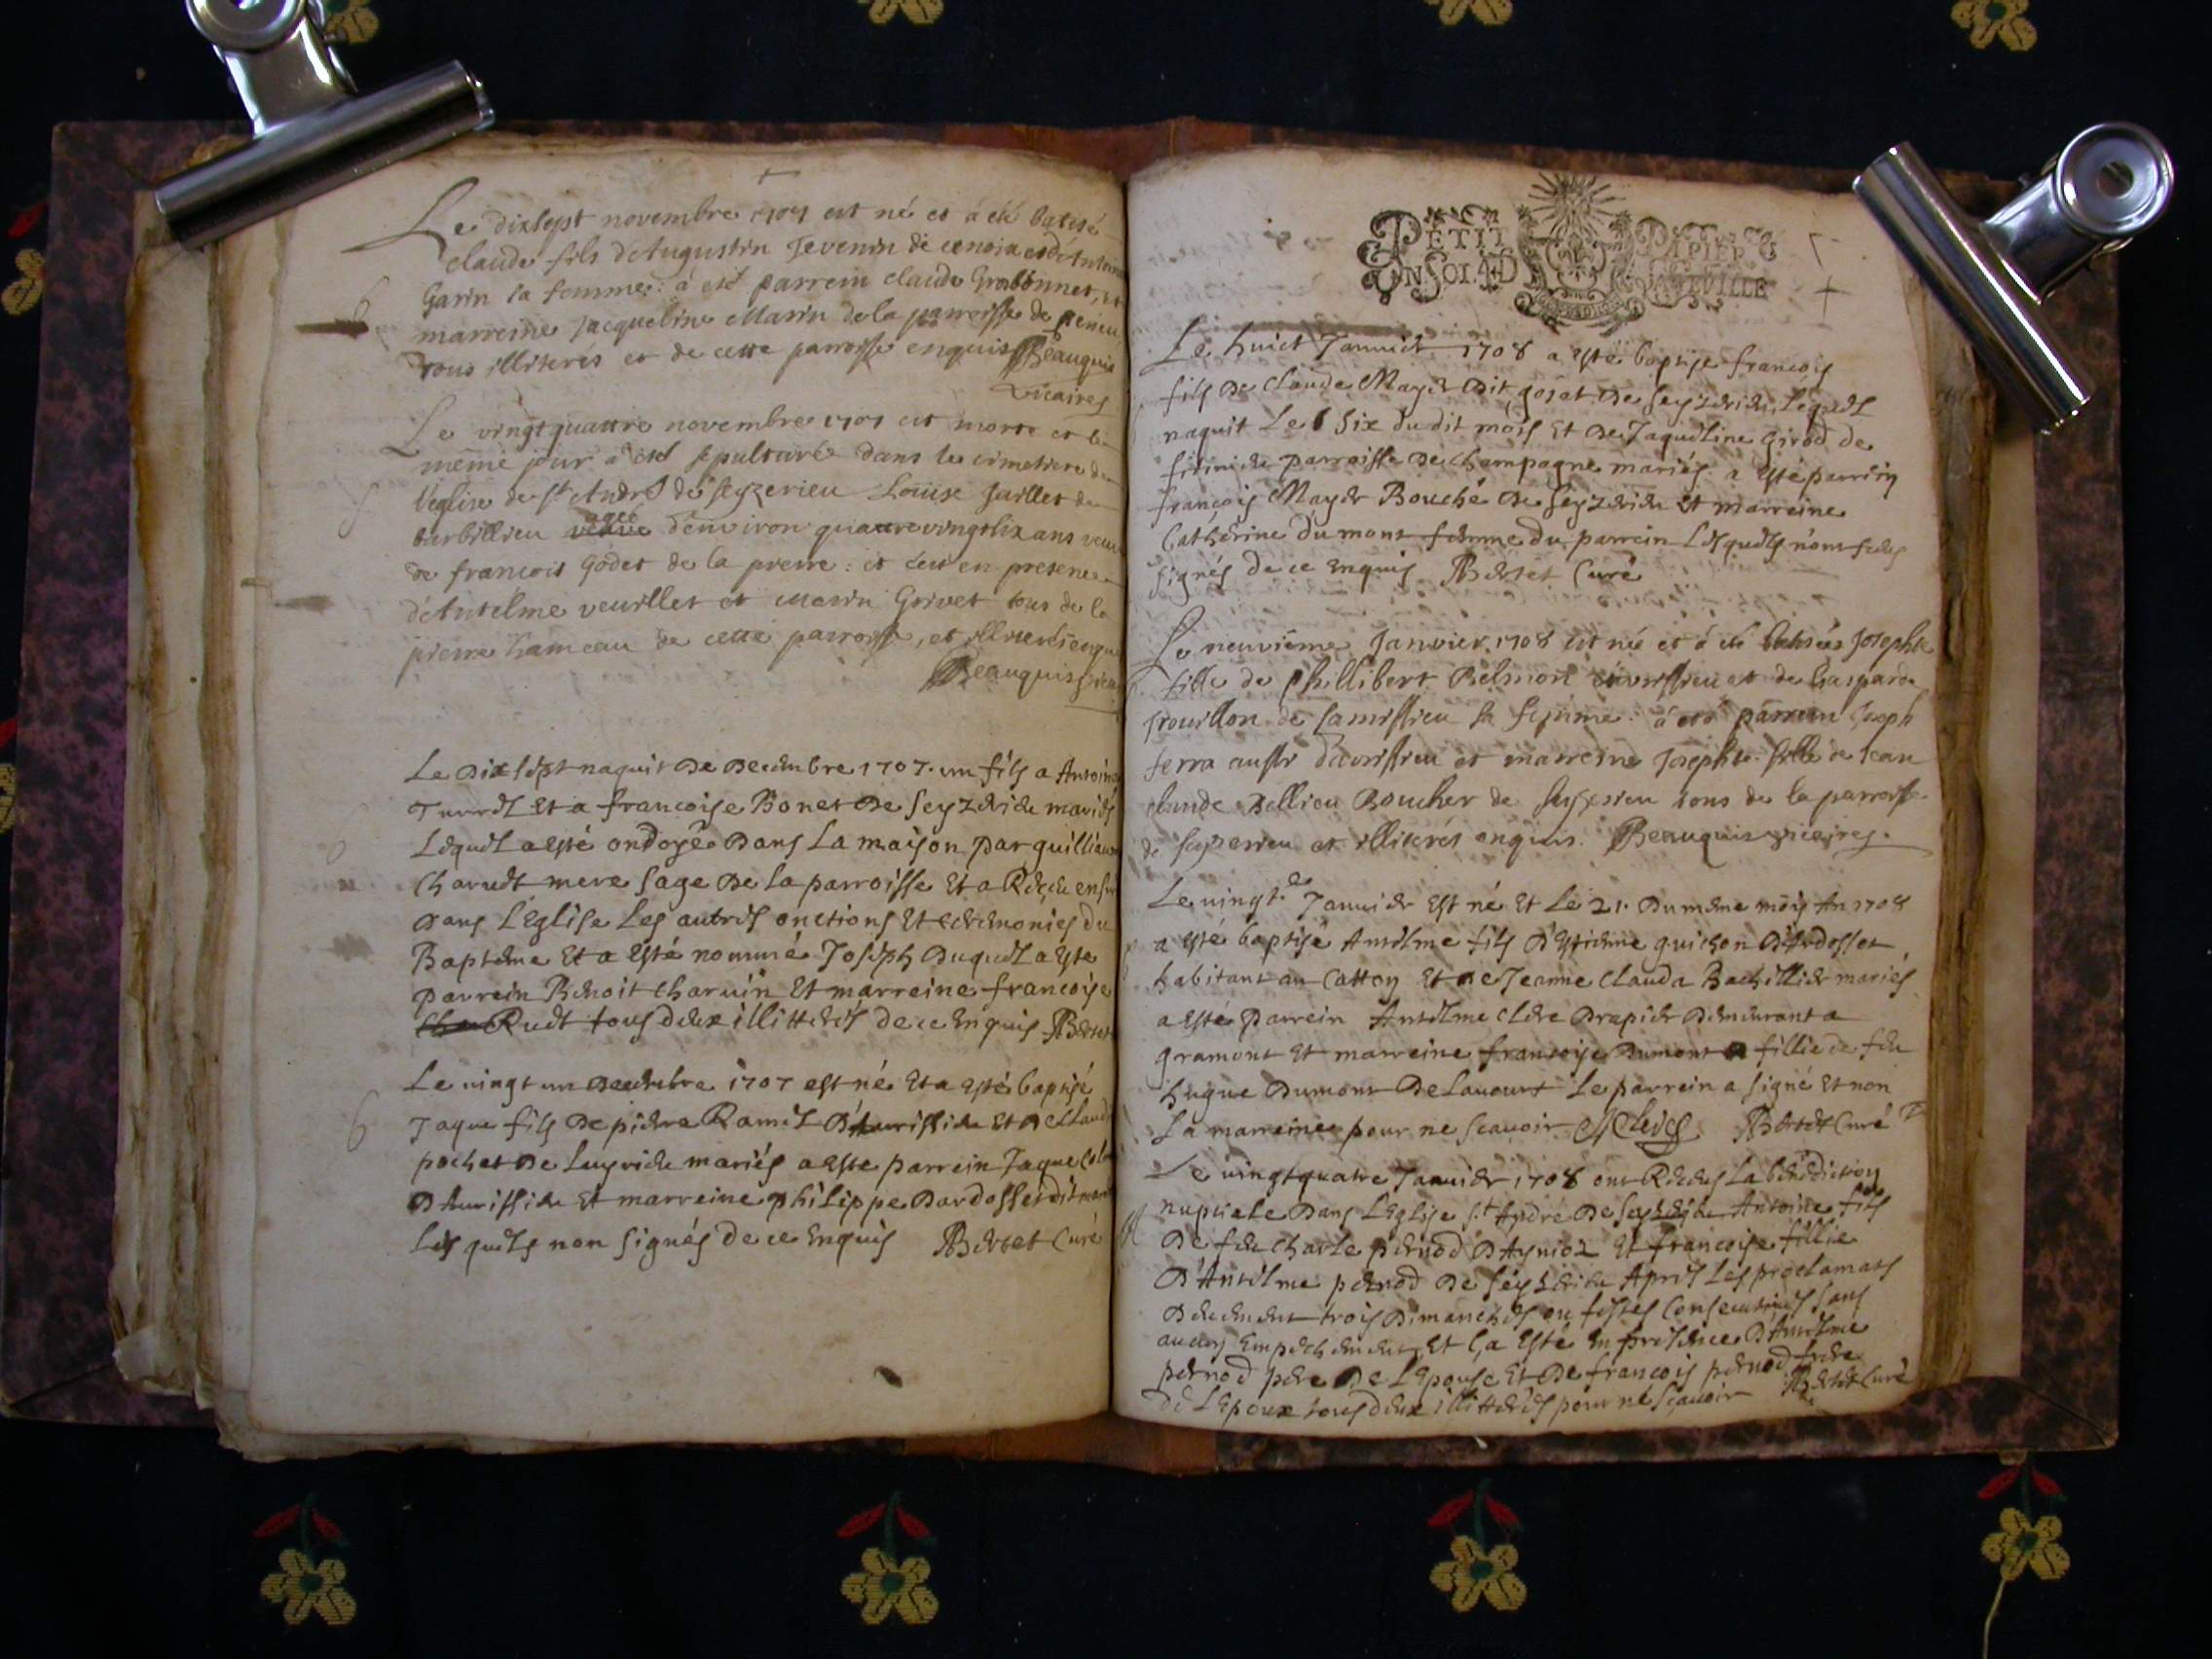 Le dixsept novembre 1707 est né et á eté batisé
claude fils d'Augustin Jevenin de et d'
Garin sa femme: á eté parrein claude et
marreine jacqueline Marin de la parroisse de
tous illiterés et de cette parroisse enquis Beauquis
vicaires
Le vingtquattre novembre 1707 est morte et le
même jour á eté sepulturé dans le cimetiere de
l'eglise de st André de seyzerieu Louise Juillet de
agée
d'environ quattrevingtsix ans
de francois Godet de la pierre: et ce en presence
d'Antelme veuillet et Marin Grivet tous de la
pierre hameau de cette parroisse, et illiterés
Beauquis
Le Dix sept naquit De Decembre 1707. un fils a
et a francoise Bonet De Seyzerieu mariés
Lequel a esté ondoyé Dans La maison Par
Charvet mere sage De la parroisse Et a Receu
Dans L'Eglise Les autres onctions Et ceremonies du
Baptême Et a esté nommé Joseph Duquel a este
parrein Benoit charvin Et marreine francoise
Ruet tous deux illitterés de ce Enquis Bertet
Le vingt un Decembre 1707 est né Et a esté baptisé
Jaque fils De pierre Ramel Et De
pochet De Luyrieu mariés a este parrein Jaque
D'Avrissieu Et marreine philippe Dardosset dit
Les quels non signés de ce Enquis Bertet Curé
PETIT PAPIER
UN SOL 4D
Le huict Janvier 1708 a esté baptisé francois
fils De Claude Mayer Dit gojat De Seyzerieu, Lequel
naquit Le six du dit mois Et De Jaqueline girod de
parroisse De champagne mariés. a esté parrein
francois Mayer Bouché De Seyzerieu Et marreine
Catherine du mont femme du parrein Lesquels n'ont
signés de ce Enquis Bertet Curé
Le neuviême Janvier 1708 est née et á eté batisée Josephte
fille de Phillibert Belmon et de Gasparde
de sa femme: á eté parrein Joseph
ferra aussi d'avrissieu et marreine Josephte fille de Jean
claude Bellieu Boucher de seyzerieu tous de la parroisse
de seyzerieu et illiterés enquis. Beauquis vicaires.
Le vingt. Janvier Est né Et Le 21. Du même mois An 1708
a esté baptisé Antelme fils D'Estienne guichon D'Ardosset
habitant au Catton Et De Jeanne Clauda Bachillier mariés
a esté Parrein Antelme Clere Drapier Demeurant a
gramont Et marreine francoise Dumont fillie de feu
hugue Dumont De Lavourt Le parrein a signé Et non
La marreine pour ne scavoir Bertet Curé
Le vingtquatre Janvier 1708 ont Receus La bénédiction
nuptiale Dans L'Eglise St André De Seyzerieu Antoine fils
De feu charle pernod Et francoise fillie
D'Antelme pernod De Seyzerieu Apres Les proclamats
Deuement trois Dimanches ou festes Consecutives sans
aucun Empechement Et ça esté En presence D'Antelme
pernod pere De L'Epouse Et De francois pernod frere
De L'Epoux tous deux illitterés pour ne sçavoir Bertet Curé